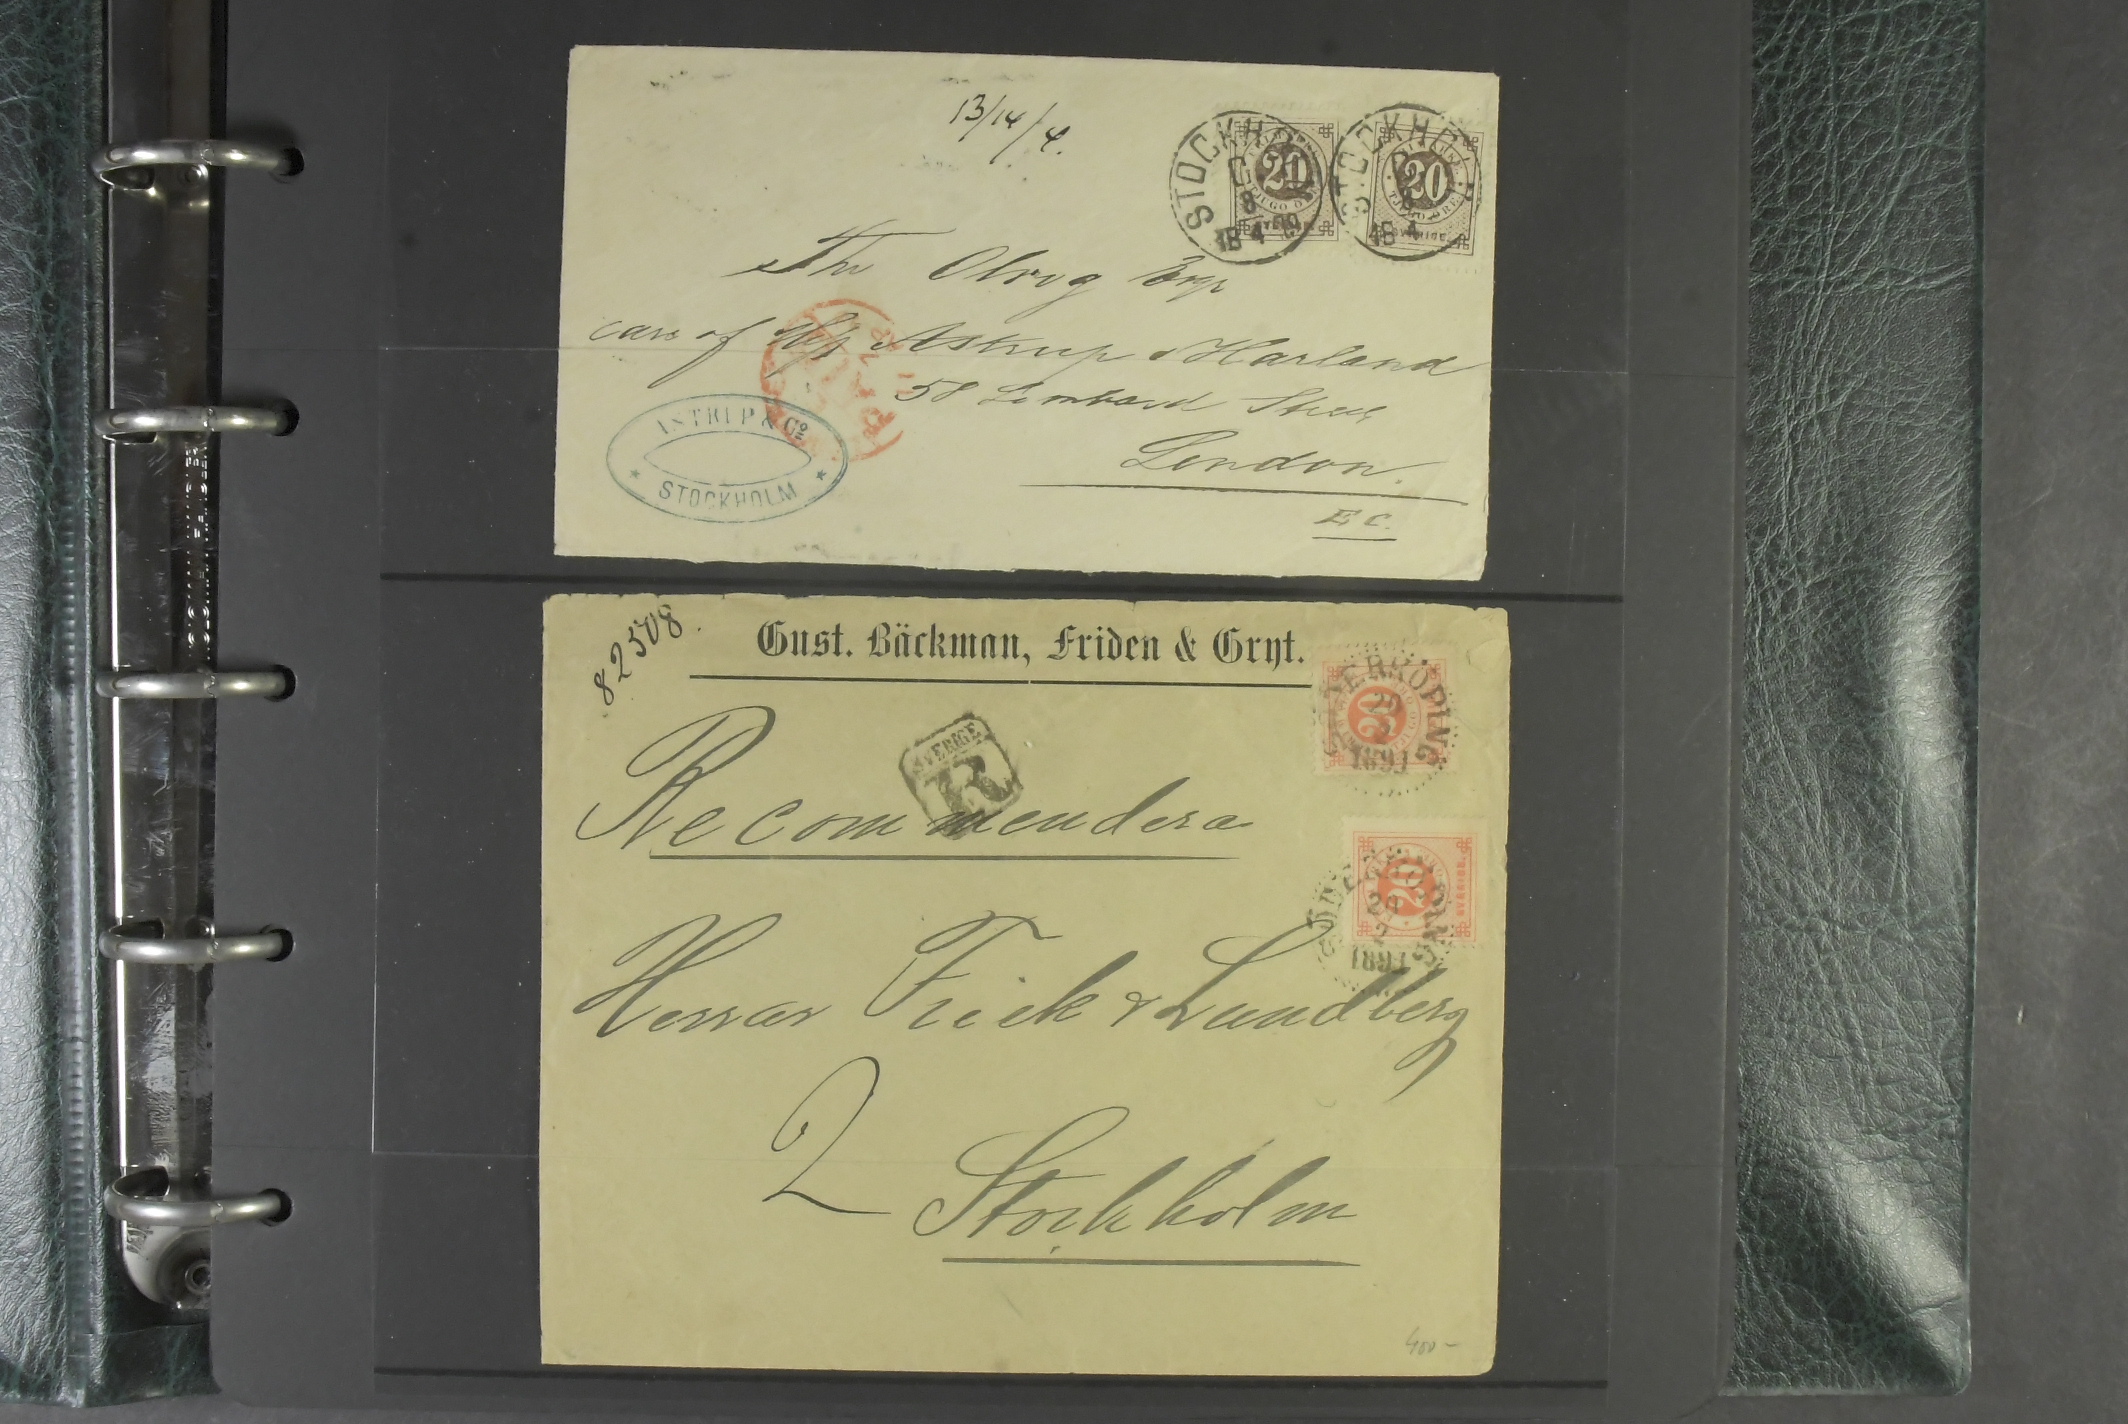 13/14/4.
STOCKHOLM
18 4
20
TJUGO ÖRE
SVERIGE
STOCKHOLM
18 4
20
TJUGO ÖRE
SVERIGE
Th Olrog Esqr
care of Mss Astrup & Harland
58 Lombard Street
London.
E C.
ASTRUP & Cº
STOCKHOLM
82508.
Gust. Bäckman, Friden & Gryt.
SÖDERKÖPING
20
1891
20
SVERIGE
R
Recommendera
20
SVERIGE
SÖDERKÖPING
20
1891
Herrar Frick & Lundberg
2
Stockholm
400–